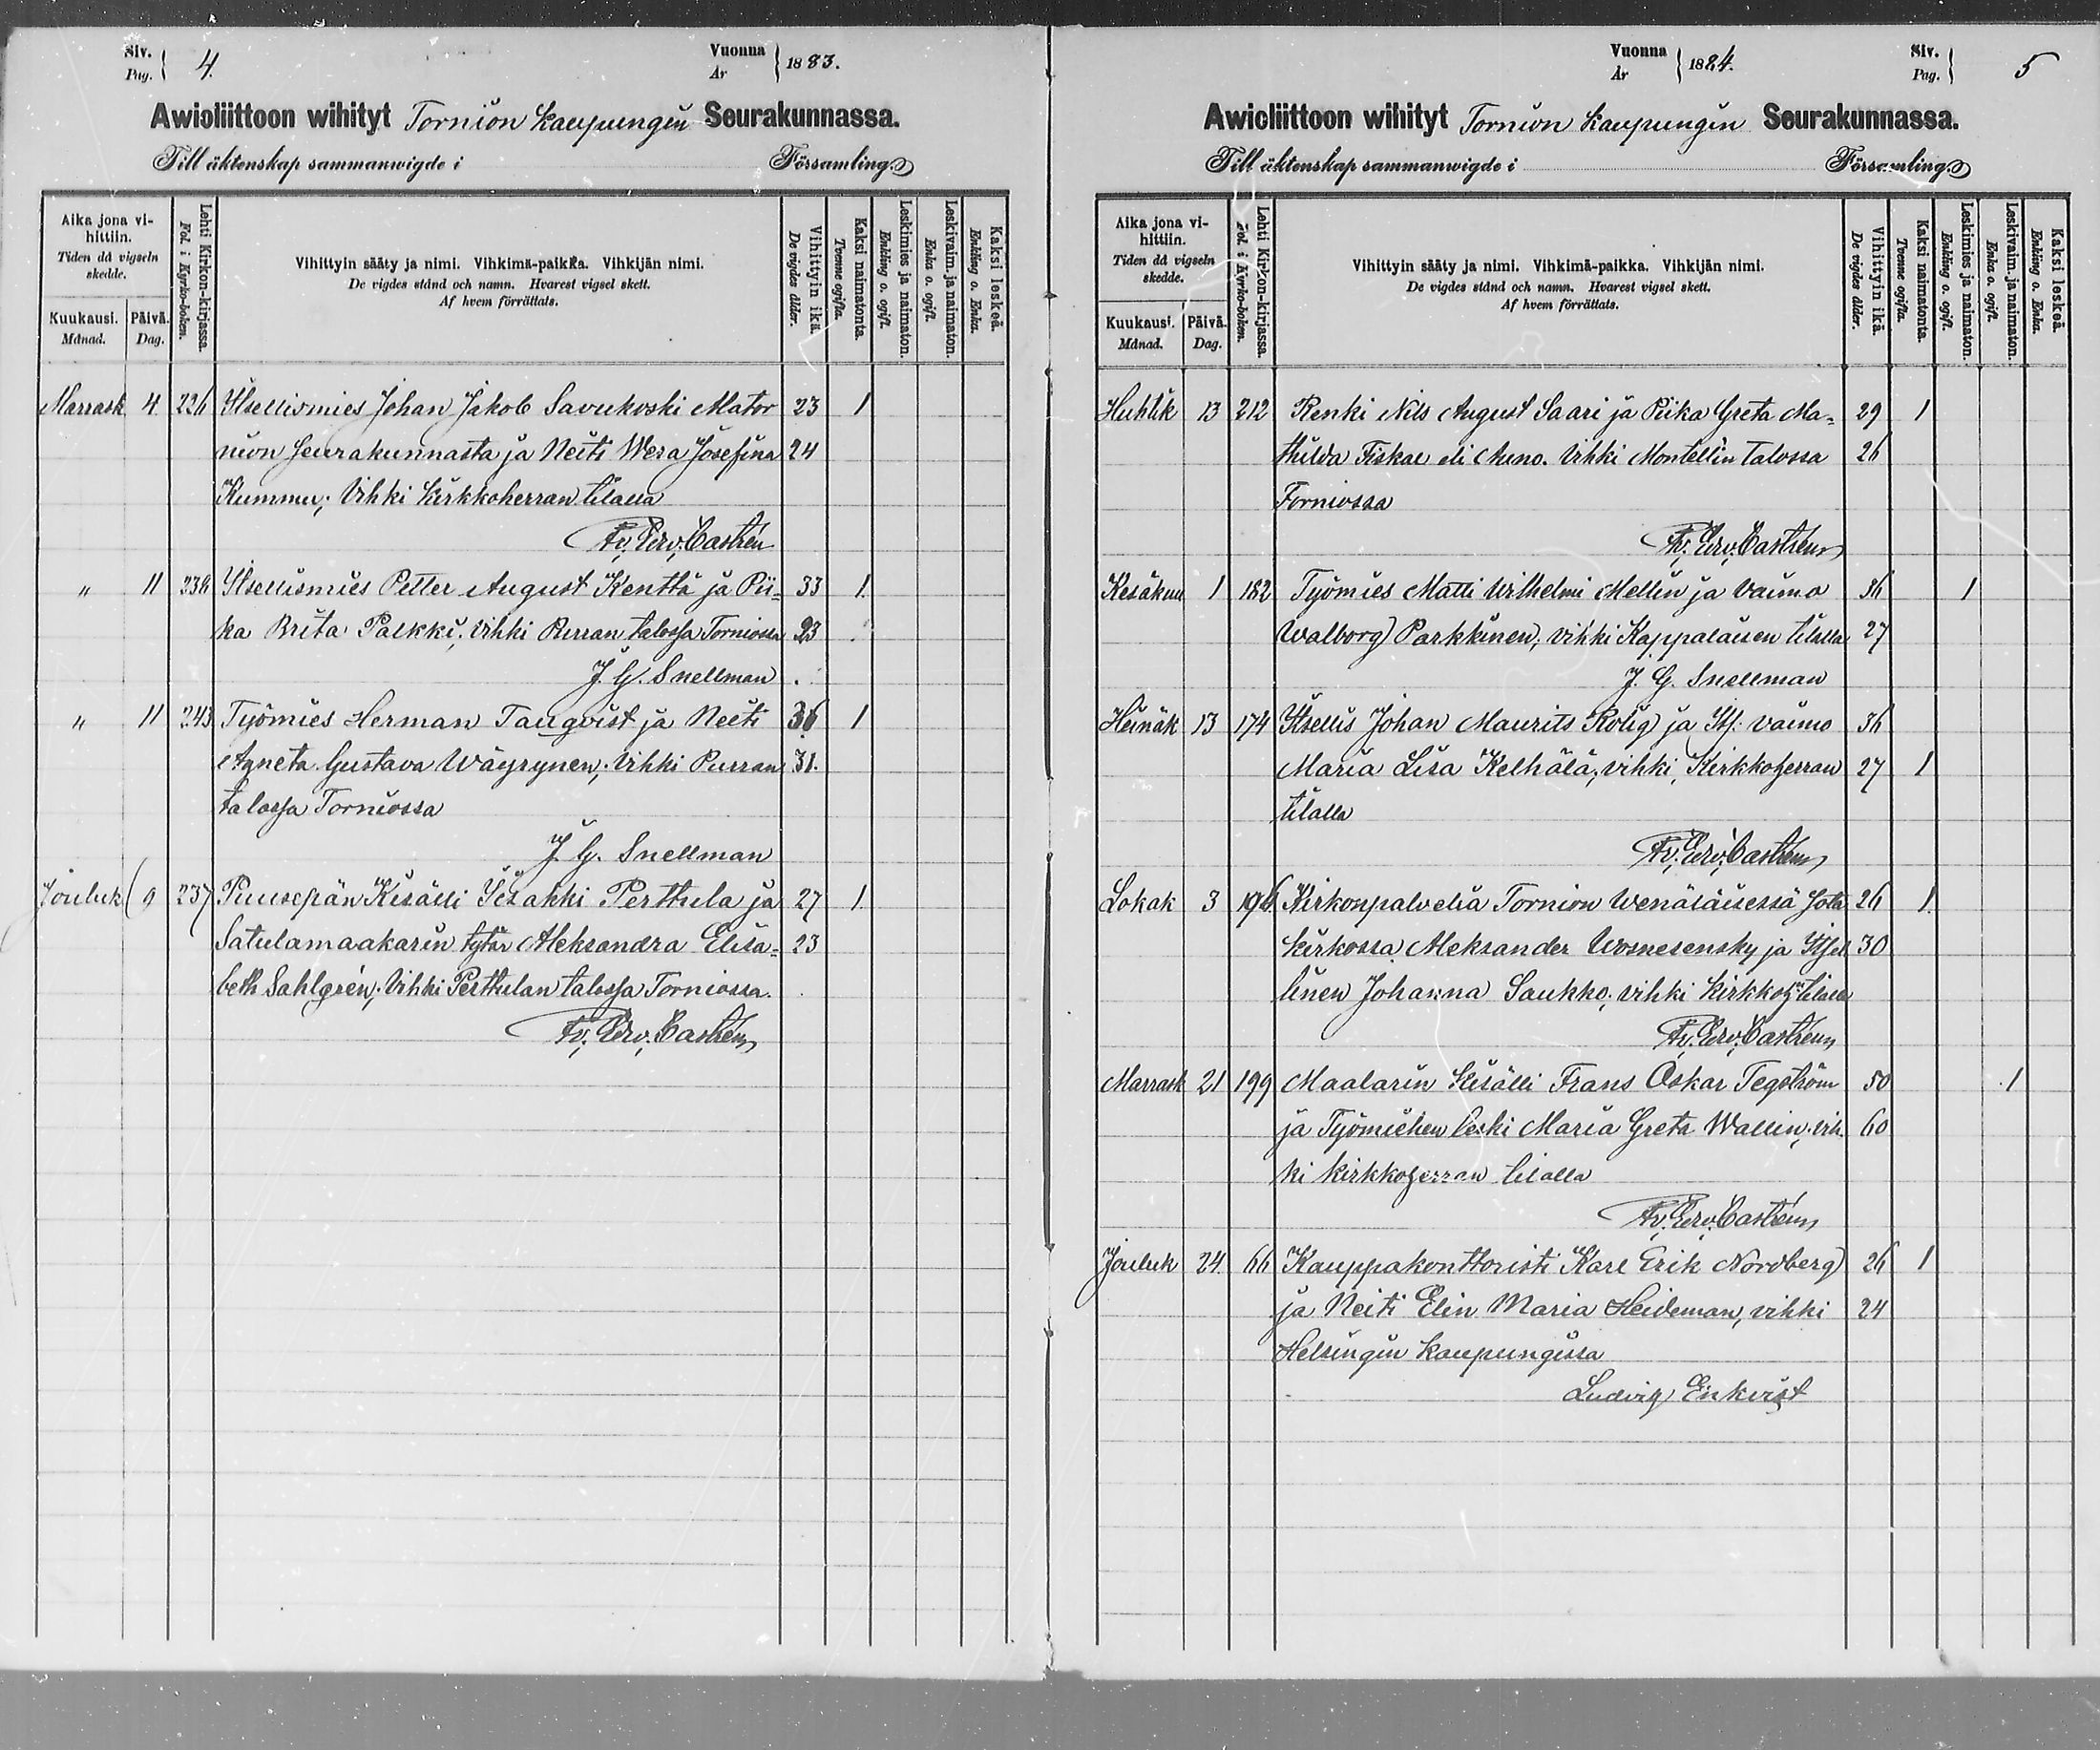 Siv.
Pag. 4.
Vuonna
År 1883.
Awioliittoon wihityt Tornion kaupungin Seurakunnassa.
Till äktenskap sammanwigde i Församling.
Aika jona vi-
hittiin.
Tiden då vigseln
skedde.
Kuukausi.
Månad.
Päivä.
Dag.
Lehti Kirkon-kirjassa.
Fol. i Kyrko-boken.
Vihittyin sääty ja nimi. Vihkimä-paikka. Vihkijän nimi.
De vigdes stånd och namn. Hvarest vigsel skett.
Af hvem förrättats.
Vihittyin ikä.
De vigdes ålder.
Kaksi naimatonta.
Tvenne ogifta.
Leskimies ja naimaton.
Enkling o. ogift.
Leskivaim. ja naimaton.
Enka o. ogift.
Kaksi leskeä.
Enkling o. Enka.
Marrask 4 226 Itsellismies Johan Jakob Savukoski Alator 23 1
nion seurakunnasta ja Neiti Wera Josefina 24
Kummu; Vihki Kirkkoherran tilalla
Fr. Erv. Castrén
" 11 238 Itsellismies Petter August Kenttä ja Pii= 33 1
ka Brita Palkki; vihki Purran talossa Torniossa 23
J. G. Snellman
" 11 243 Työmies Herman Tanqvist ja Neiti 36 1
Agneta Gustava Wäyrynen; vihki Purran 31.
talossa Torniossa
J. G. Snellman
Jouluk 9 237 Puusepän Kisälli Iisakki Perttula ja 27 1
Satulamaakarin tytär Aleksandra Elisa= 23
beth Sahlgrén; Vihki Perttulan talossa Torniossa.
Fr. Erv. Castrén
Vuonna
År 1884.
Siv.
Pag. 5
Awioliittoon wihityt Tornion kaupungin Seurakunnassa.
Till äktenskap sammanwigde i Församling.
Aika jona vi-
hittiin.
Tiden då vigseln
skedde.
Kuukausi.
Månad.
Päivä.
Dag.
Lehti Kirkon-kirjassa.
Fol. i Kyrko-boken.
Vihittyin sääty ja nimi. Vihkimä-paikka. Vihkijän nimi.
De vigdes stånd och namn. Hvarest vigsel skett.
Af hvem förrättats.
Vihittyin ikä.
De vigdes ålder.
Kaksi naimatonta.
Tvenne ogifta.
Leskimies ja naimaton.
Enkling o. ogift.
Leskivaim. ja naimaton.
Enka o. ogift.
Kaksi leskeä.
Enkling o. Enka.
Huhtik 13 212 Renki Nils August Saari ja Piika Greta Ma= 29 1
thilda Fiskal eli Aeno. Vihki Montellin talossa 26
Torniossa
Fr. Erv. Castrén
Kesäkuu 1 182 Työmies Matti Wilhelmi Mellin ja vaimo 36 1
Walborg Parkkinen; vihki Kappalaisen tilalla 27
J. G. Snellman
Heinäk 13 174 Itsellis Johan Maurits Rölig ja Its. vaimo 36
Maria Lisa Kelhälä; vihki Kirkkoherran 27 1
tilalla
Fr. Erv. Castrén
Lokak 3 196 Kirkonpalvelia Tornion Wenäläisessä sota 26 1
kirkossa Aleksander Wosnesensky ja Itsel 30
linen Johanna Saukko; vihki Kirkkoh:n tilalla
Fr. Erv. Castrén
Marrask 21 199 Maalarin Kisälli Frans Oskar Tegström 50 1
ja Työmiehen leski Maria Greta Wallin; vih 60
ki kirkkoherran tilalla
Fr. Erv. Castrén
Jouluk 24 66 Kauppakonttoristi Karl Erik Nordberg 26 1
ja Neiti Elin Maria Heideman, vihki 24
Helsingin Kaupungissa
Ludvig Enkvist